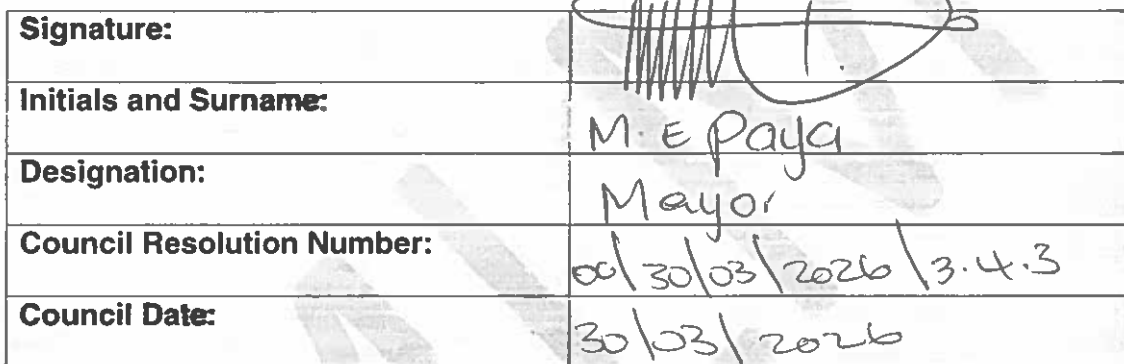 Signature:
Initials and Surname: M. E Paya
Designation: Mayor
Council Resolution Number: oc/30/03/2026/3.4.3
Council Date: 30/03/2026